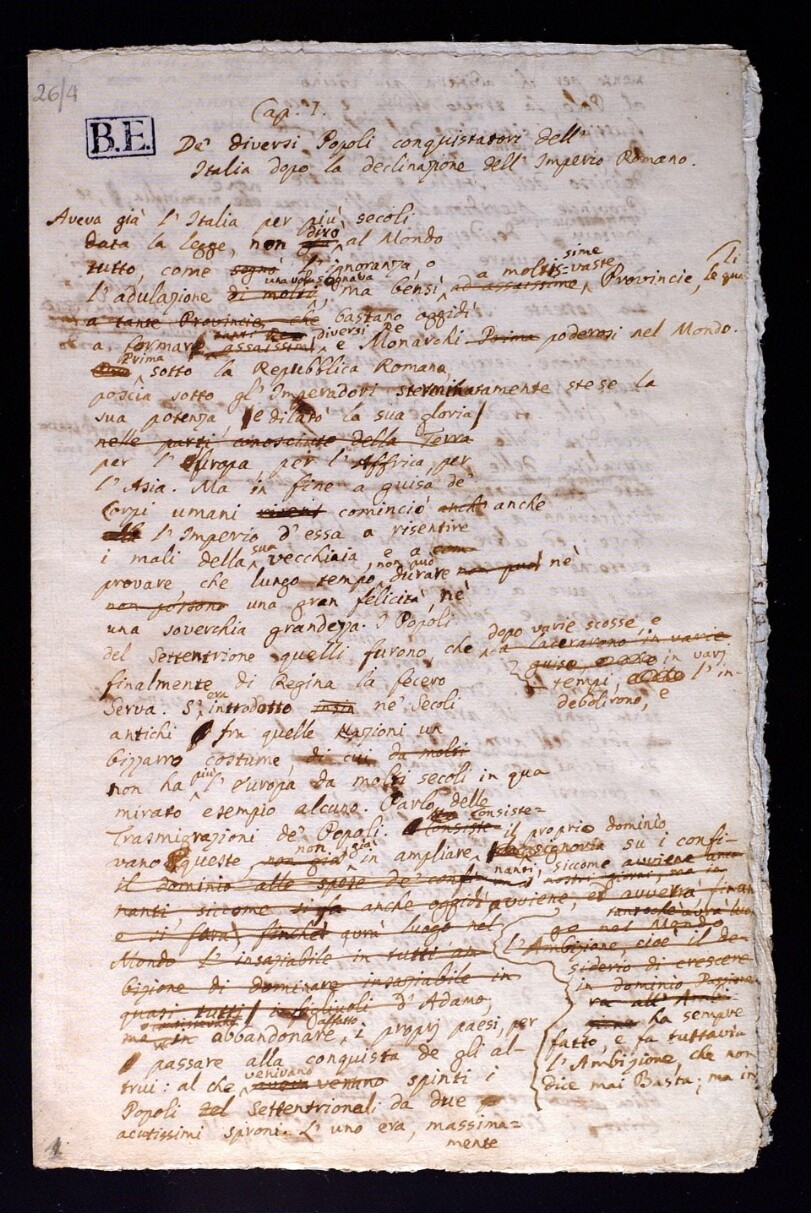 26/4
B.E.
Cap. I.
De' diversi Popoli conquistatori dell'
Italia dopo la declinazione dell' Imperio Romano.
Aveva già l' Italia per più secoli
data la legge, non dirò al Mondo
tutto, come sognò l' ignoranza o
l' adulazione di molti, ma bensì ad assaissime a moltissime vaste Provincie, le quali
a tante Provincie, che bastano oggidì
a formare assaissimi diversi Re e Monarchi Prima poderosi nel Mondo.
Prima sotto la Repubblica Romana,
poscia sotto gl' Imperadori sterminatamente stese la
sua potenza e dilatò la sua gloria
nelle parti conosciute della Terra
per l' Europa, per l' Affrica, per
l' Asia. Ma in fine a guisa de'
Corpi umani cominciò anch' anche
l' Imperio d' essa a risentire
i mali della sua vecchiaia, e a
provare che lungo tempo non può durare non può nè
non possono una gran felicità, nè
una soverchia grandezza. I Popoli
del Settentrione quelli furono, che dopo varie scosse, e
la lacerarono in varie
guise in varj
tempi, l' in-
debolirono, e
finalmente di Regina la fecero
Serva. S' era introdotto ne' Secoli
antichi fra quelle Nazioni un
bizzarro costume, di cui da molti
non ha più l' Europa da molti secoli in qua
mirato esempio alcuno. Parlo delle
Trasmigrazioni de' Popoli. Consiste=
vano queste non già in ampliare il proprio dominio
su i confi-
nanti, siccome avviene
il dominio alle spese de' confi
nanti, siccome si fa anche oggidì avviene, ed avverrà
e si farà, finchè avrà luogo nel
Mondo l' insaziabile in tutti am
bizione di dominare insaziabile in
quasi tutti i figliuoli d' Adamo;
ma in abbandonare affatto i proprj paesi, per
passare alla conquista de gli al-
trui: al che venivano spinti i
Popoli Settentrionali da due
acutissimi sproni. L' uno era, massima=
mente
l' Ambizione, cioè il de-
siderio di crescere
in dominio
ha sempre
fatto, e fa tuttavia
l' Ambizione, che non
dice mai Basta; ma in
1